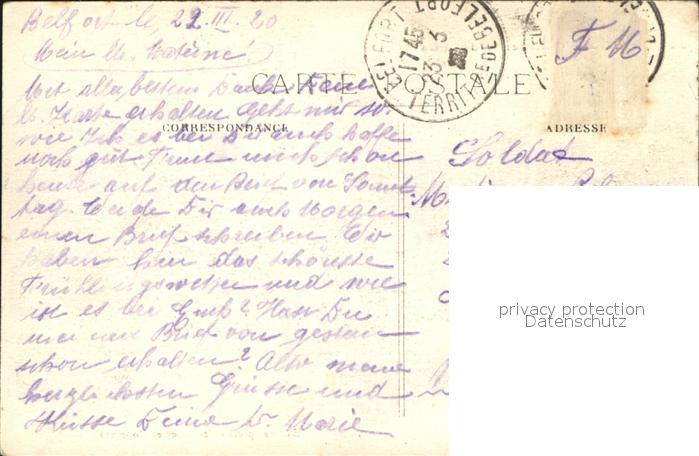 Belfort le 22. III. 20
Mein lb. Materne!
Mit allerbestem Dank Deine
lb. Karte erhalten geht mir so
wie Ich es bei Dir auch hoffe
noch gut Freue mich schon
heute auf den Brief von Sonn-
tag. Werde Dir auch Morgen
einen Brief schreiben. Wir
haben hier das schönste
Frühlingswetter und wie
ist es bei Euch? Hast Du
meinen Brief von gestern
schon erhalten? Also meine
herzlichsten Grüsse und
Küsse Deine lb. Marie
CARTE POSTALE
CORRESPONDANCE
ADRESSE
BELFORT
17 45
23 3
TERRIT. DE BELFORT
F M
Soldat
privacy protection
Datenschutz